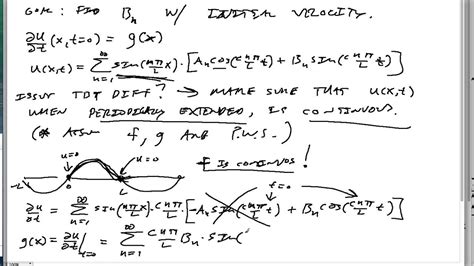 GOAL: FIND Bₙ W/ INITIAL VELOCITY.
∂u/∂t (x,t=0) = g(x)
u(x,t) = ∑_{n=1}^{∞} sin(nπ/L x)·[Aₙ cos(cnπ/L t) + Bₙ sin(cnπ/L t)]
ISSUE TDT DIFF? → MAKE SURE THAT u(x,t)
WHEN PERIODICALLY EXTENDED, IS CONTINUOUS.
(* ASSUM f, g ARE P.W.S.)
u=0 u=0 f IS CONTINUOUS!
-L 0 L
t=0
∂u/∂t = ∑_{n=1}^{∞} sin(nπ/L x)·cnπ/L [-Aₙ sin(cnπ/L t) + Bₙ cos(cnπ/L t)]
g(x) = ∂u/∂t |_{t=0} = ∑_{n=1}^{∞} cnπ/L Bₙ·sin(